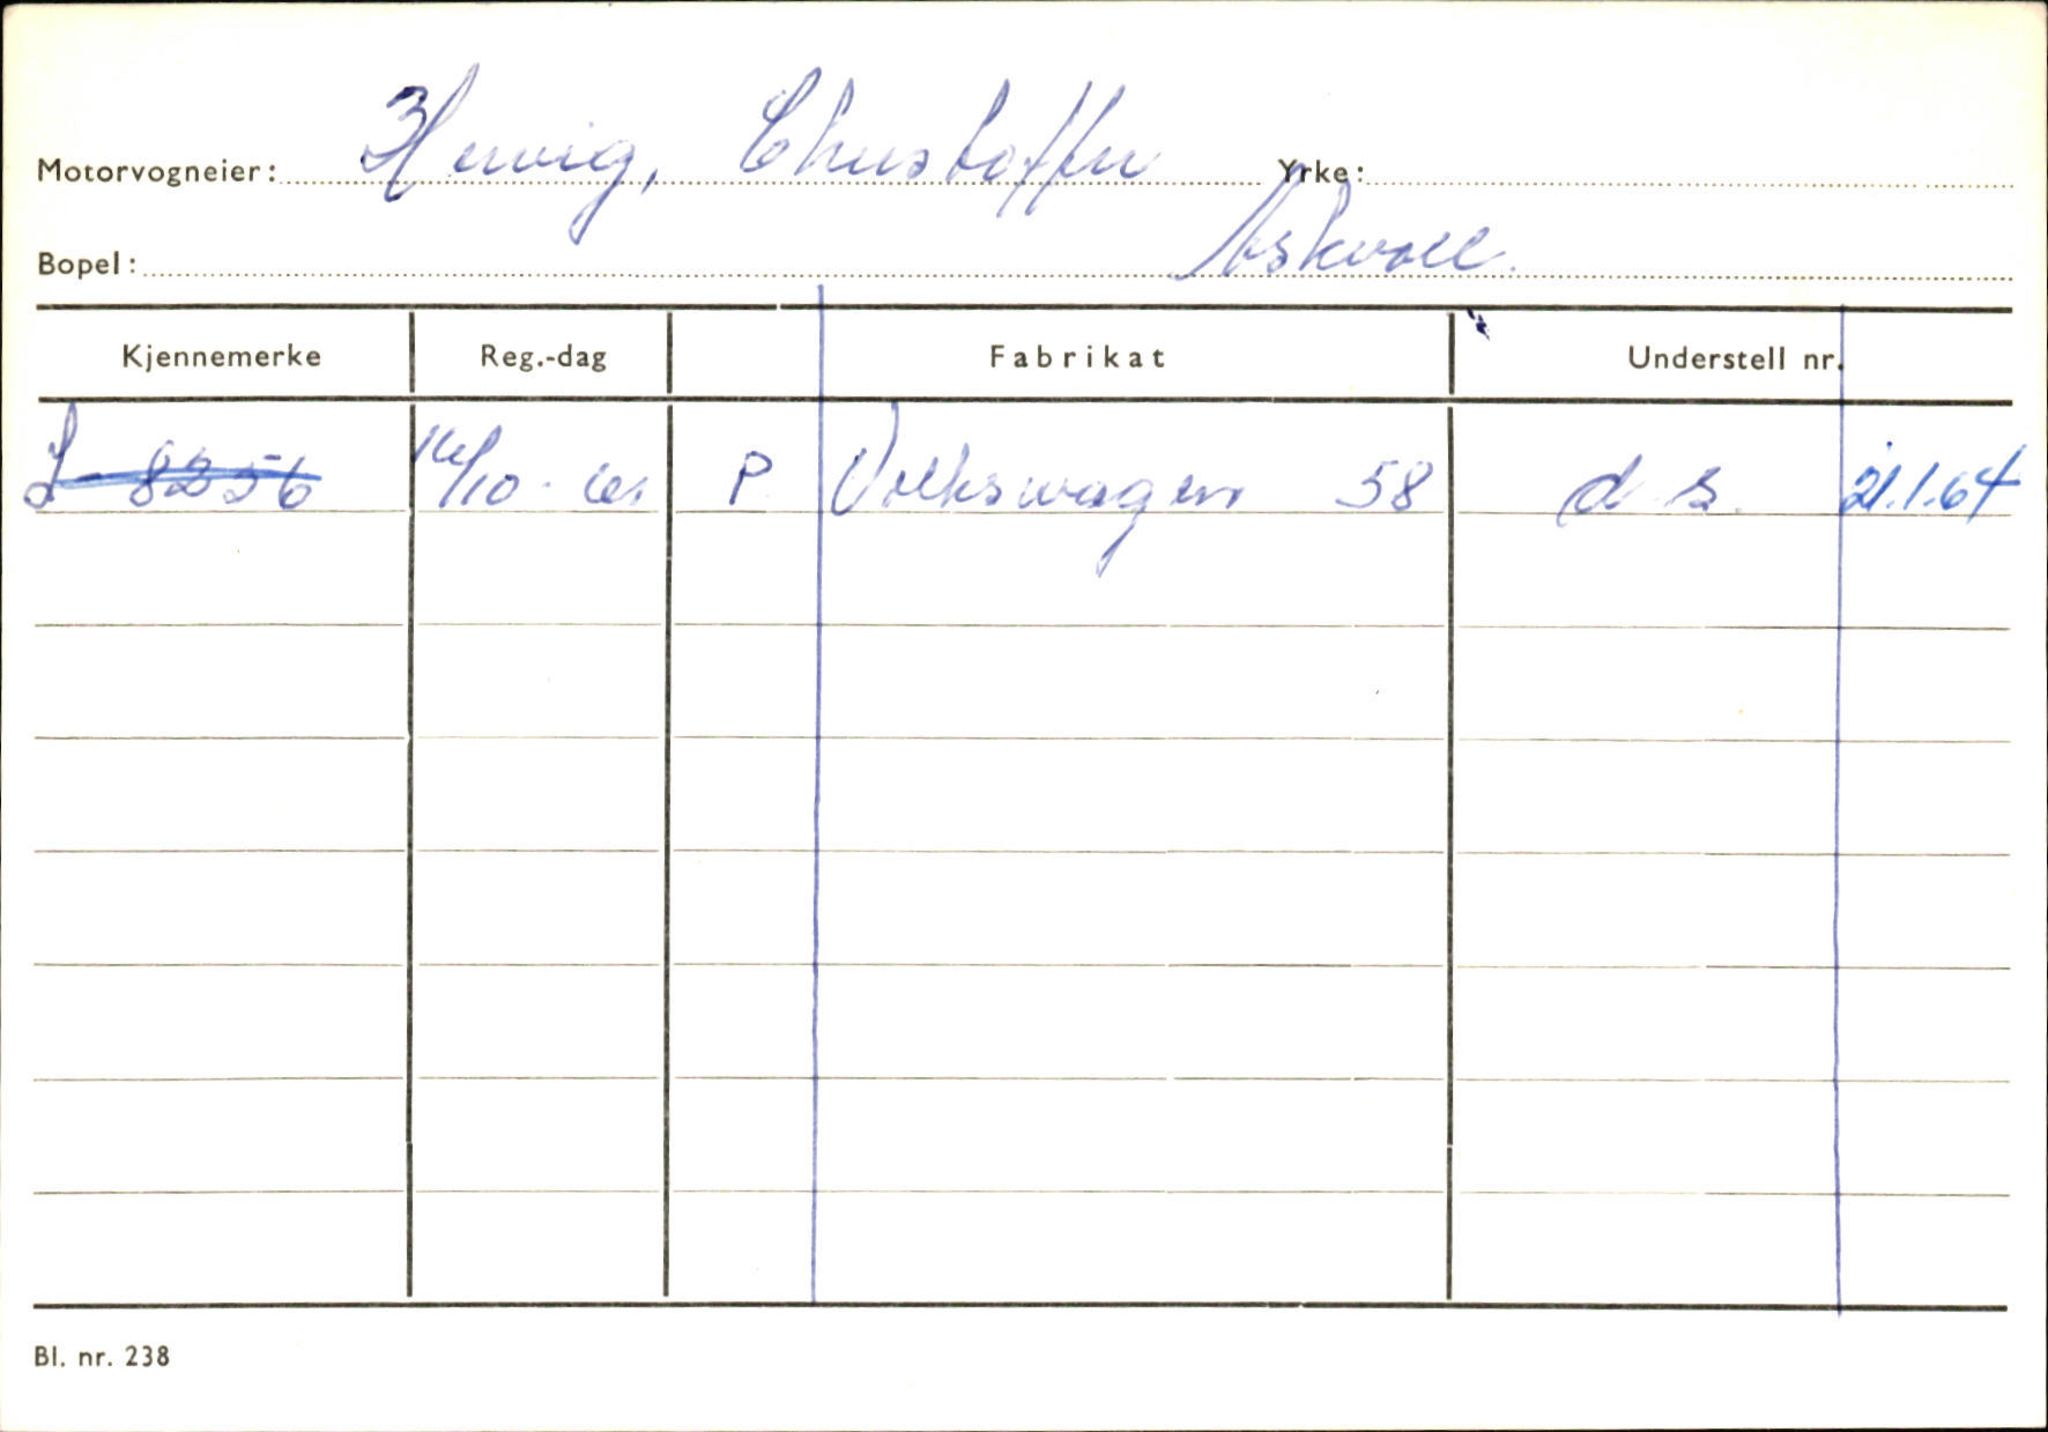 Motorvogneier: Hervig, Christoffer Yrke:
Bopel: Askvoll.
Kjennemerke Reg.-dag Fabrikat Understell nr.
S-8256 14/10-61 P Volkswagen 58 d s. 21.1.64
Bl. nr. 238